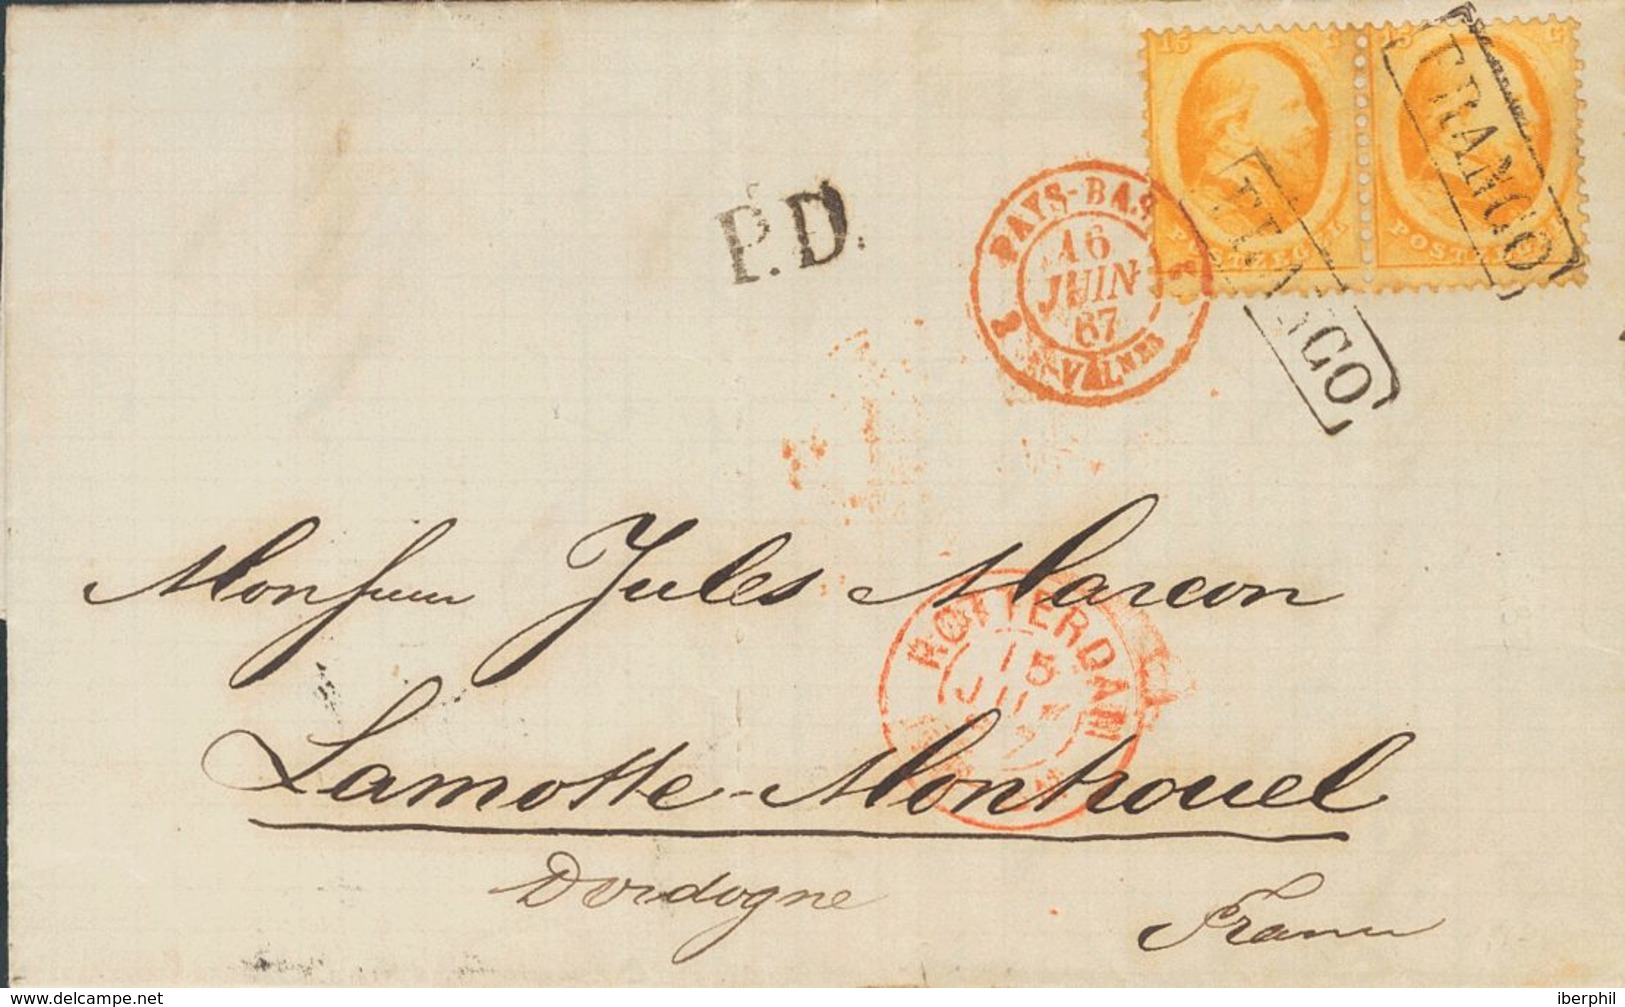 15
15 C
POSTZEGEL
POSTZ
FRANCO
FRANCO
P.D.
PAYS-BAS
16
JUIN
67
2 VALNES 2
Monsieur Jules Marcon
ROTTERDAM
15
JU
Lamotte-Montrouel
Dordogne
France
www.delcampe.net
iberphil